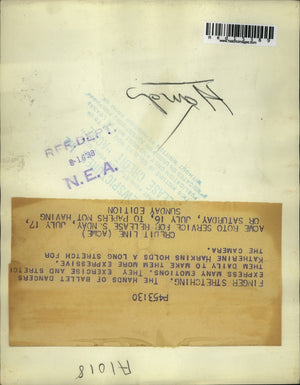 Hands
REF. DEPT.
N.E.A.
P453130
FINGER STRETCHING. THE HANDS OF BALLET DANCERS
EXPRESS MANY EMOTIONS. THEY EXERCISE AND STRETCH
THEM DAILY TO MAKE THEM MORE EXPRESSIVE.
KATHERINE HARKINS HOLDS A LONG STRETCH FOR
THE CAMERA.
CREDIT LINE (ACME)
ACME ROTO SERVICE FOR RELEASE SUNDAY, JULY 17,
OR SATURDAY, JULY 16, TO PAPERS NOT HAVING
SUNDAY EDITION
A1018